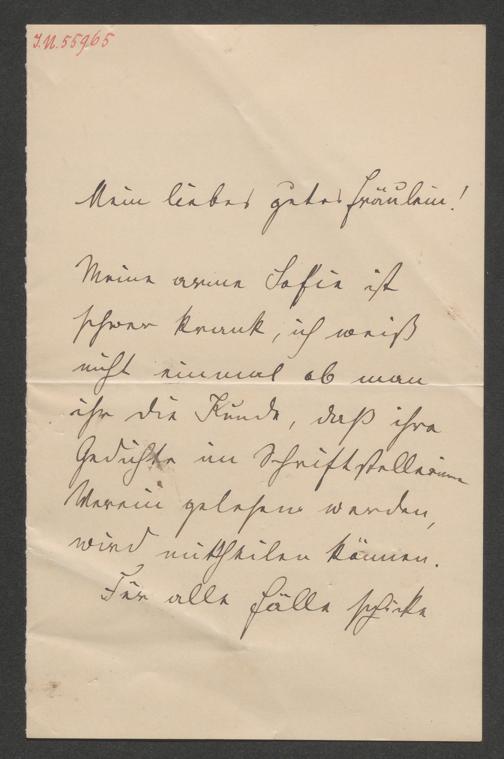 I.N. 55965
Mein liebes gutes Fräulein!
Meine arme Sofie ist
schwer krank, ich weiß
nicht einmal ob man
ihr die Kunde, daß ihre
Gedichte im Schriftstellerinnen
Verein gelesen werden,
wird mittheilen können.
Für alle Fälle schicke